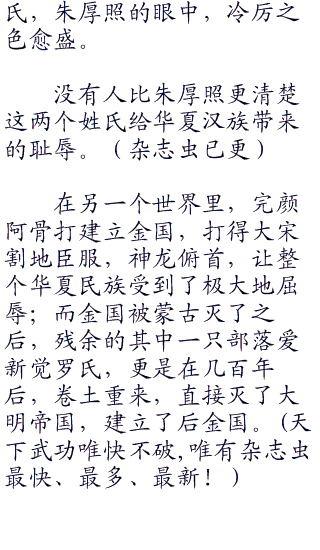 氏，朱厚照的眼中，冷厉之
色愈盛。
没有人比朱厚照更清楚
这两个姓氏给华夏汉族带来
的耻辱。（杂志虫已更）
在另一个世界里，完颜
阿骨打建立金国，打得大宋
割地臣服，神龙俯首，让整
个华夏民族受到了极大地屈
辱；而金国被蒙古灭了之
后，残余的其中一只部落爱
新觉罗氏，更是在几百年
后，卷土重来，直接灭了大
明帝国，建立了后金国。(天
下武功唯快不破,唯有杂志虫
最快、最多、最新！)